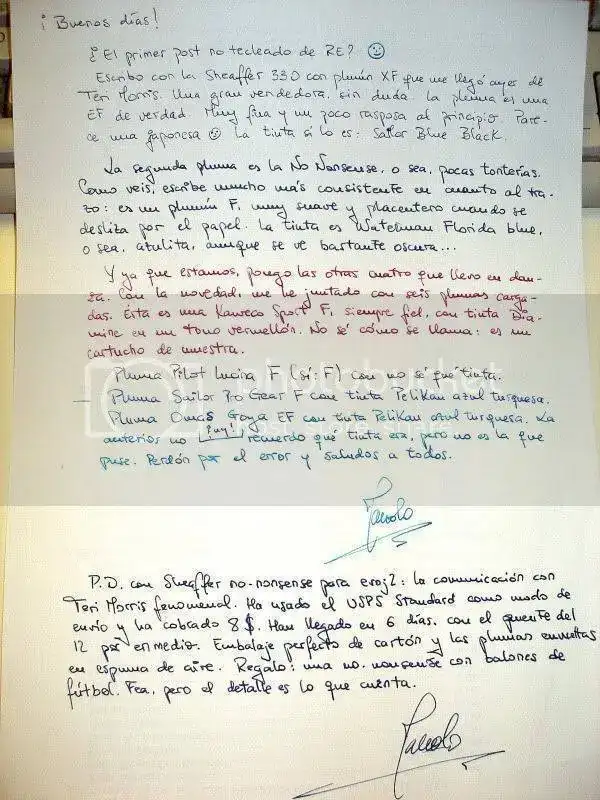 ¡Buenos días!
¿El primer post no tecleado de RE? ☺
Escribo con la Sheaffer 330 con plumín XF que me llegó ayer de
Teri Morris. Una gran vendedora, sin duda. La pluma es una
EF de verdad. Muy fina y un poco rasposa al principio. Pare-
ce una japonesa ☺ La tinta sí lo es: Sailor Blue Black.
La segunda pluma es la No Nonsense, o sea, pocas tonterías.
Como veis, escribe mucho más consistente en cuanto al tra-
zo: es un plumín F, muy suave y placentero cuando se
desliza por el papel. La tinta es Waterman Florida blue,
o sea, azulita, aunque se ve bastante oscura...
Y ya que estamos, pongo las otras cuatro que llevo en dan-
za. Con la novedad, me he juntado con seis plumas carga-
das. Ésta es una Kaweco Sport F, siempre fiel, con tinta Dia-
mine en un tono vermellón. No sé cómo se llama: es un
cartucho de muestra.
Pluma Pilot Lucina F (sí: F) con no sé qué tinta.
Pluma Sailor Pro Gear F con tinta Pelikan azul turquesa.
Pluma Omas Goya EF con tinta Pelikan azul turquesa. La
anterior no ¡puy! recuerdo qué tinta era, pero no es la que
puse. Perdón por el error y saludos a todos.
Manolo
P.D. con Sheaffer no-nonsense para eroj2: la comunicación con
Teri Morris fenomenal. Ha usado el USPS Standard como modo de
envío y ha cobrado 8 $. Han llegado en 6 días, con el puente del
12 por en medio. Embalaje perfecto de cartón y las plumas envueltas
en espuma de aire. Regalo: una no-nonsense con balones de
fútbol. Fea, pero el detalle es lo que cuenta.
Manolo
photobucket
host. store. share.